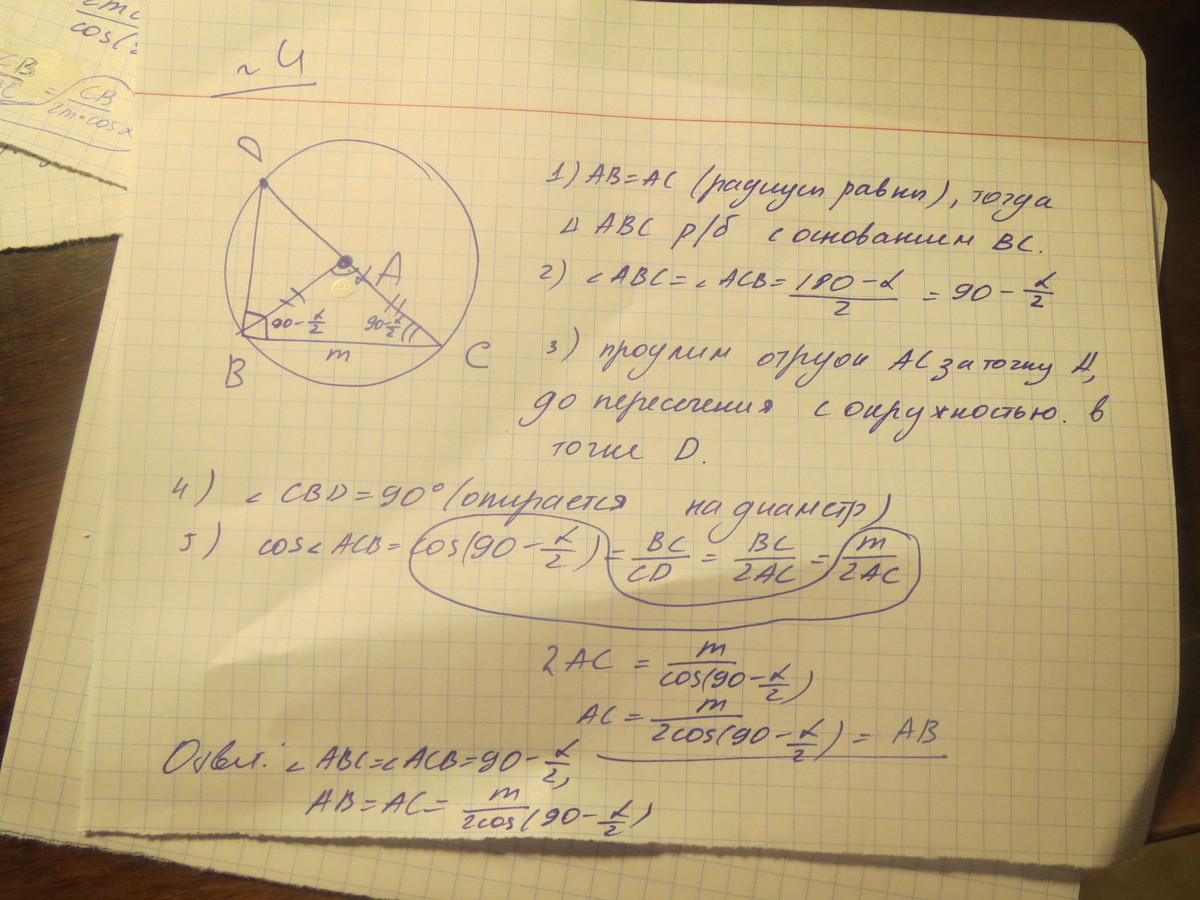 cos(
CB
CB
2m·cosα
№4
D
A
α
90-α/2
90-α/2
m
B
C
1) AB=AC (радиусы равны), тогда
Δ ABC р/б с основанием BC.
2) ∠ABC=∠ACB= (180-α)/2 = 90-α/2
3) продлим отрезок AC за точку A,
до пересечения с окружностью. в
точке D.
4) ∠CBD=90° (опирается на диаметр)
5) cos∠ACB= cos(90-α/2) = BC/CD = BC/2AC = m/2AC
2AC = m/cos(90-α/2)
AC = m/2cos(90-α/2) = AB
Ответ: ∠ABC=∠ACB=90-α/2,
AB=AC= m/2cos(90-α/2)